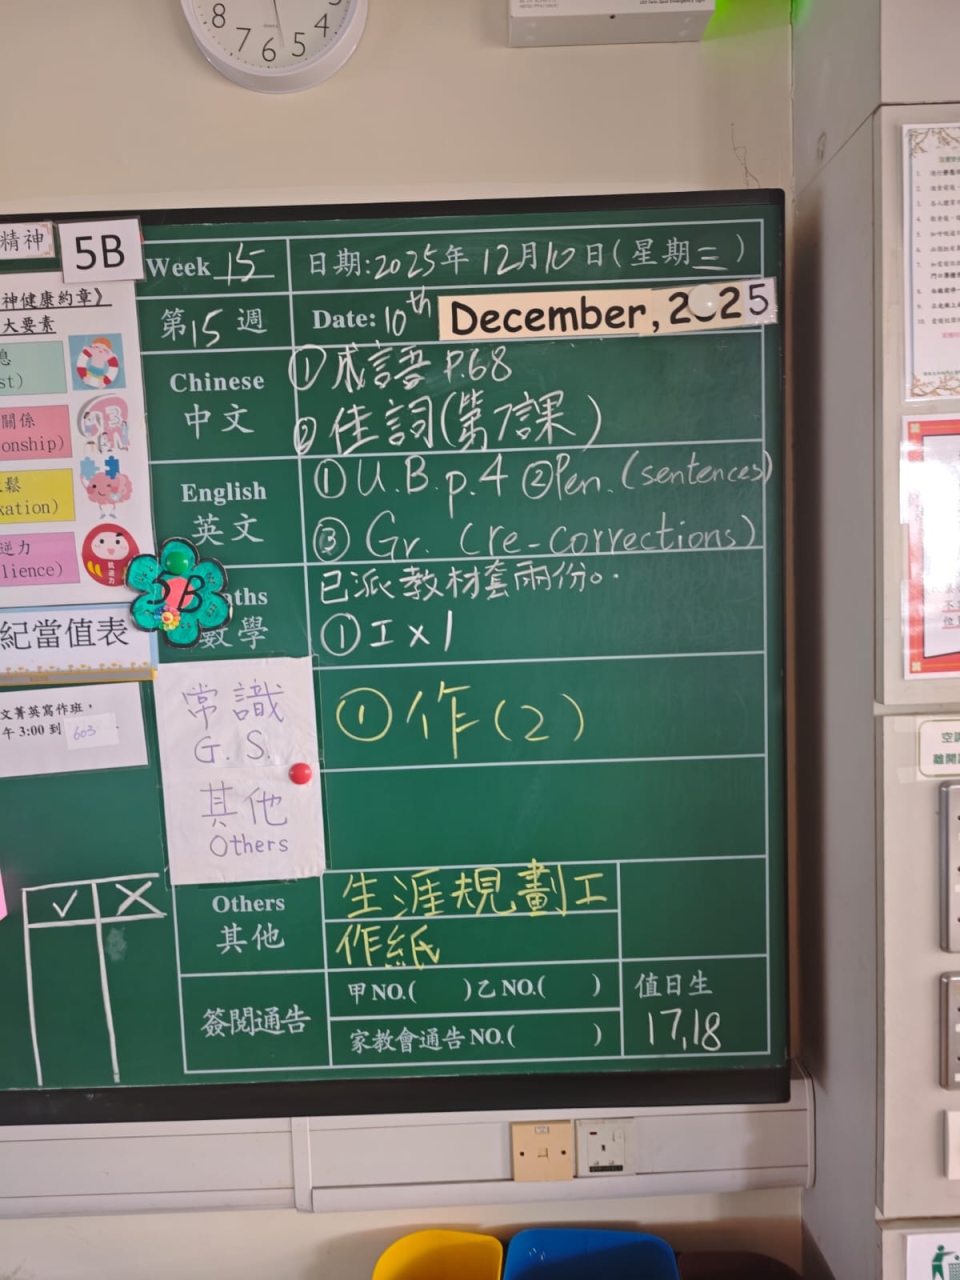 8 7 6 5 4
精神
5B
神健康約章》
大要素
st)
關係
onship)
xation)
逆力
lience)
5B
紀當值表
文菁英寫作班，
午3:00到 603
✓ ✕
Week 15
日期:2025年12月10日(星期三)
第15週
Date: 10th December, 2025
Chinese
中文
①成語 P.68
②佳詞(第7課)
English
英文
①U.B. p.4 ②Pen. (sentences)
③ Gr. (re-corrections)
aths
數學
已派教材套兩份。
①工x1
常識
G.S.
①作(2)
其他
Others
Others
其他
生涯規劃工
作紙
簽閱通告
甲NO.( )乙NO.( )
家教會通告NO.( )
值日生
17,18
空調
離開